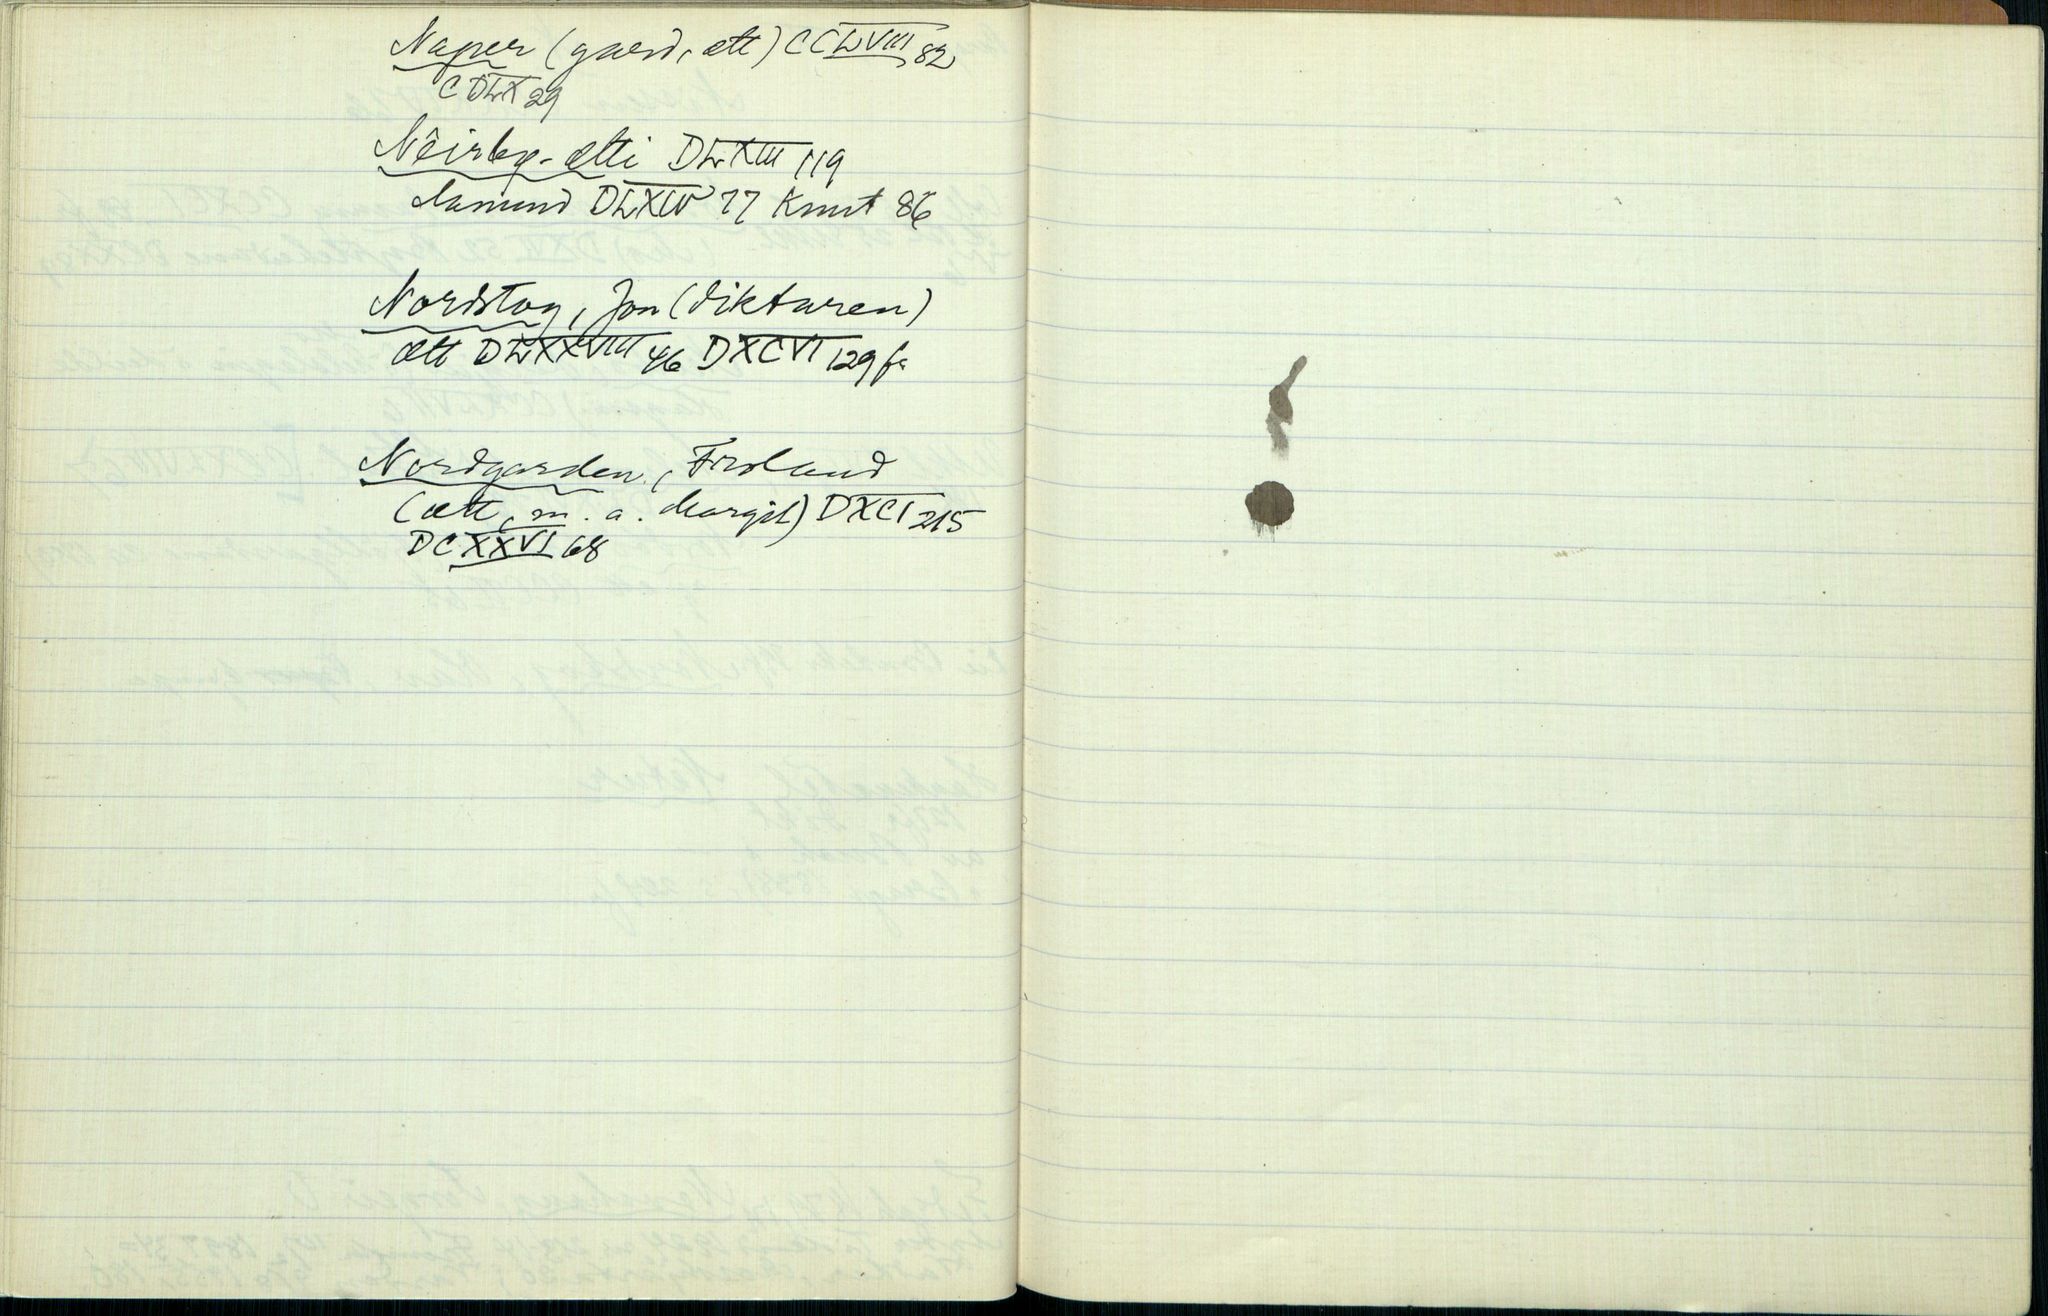 Naper (gard, ætt) CCLVIII 82
CDLX 29
Nêirbø-ætti DLXIII 119
Aamund DLXIV 77 Knut 86
Nordstog, Jon (diktaren)
ætt DLXXVIII 46 DXCVI 129 fr
Nordgarden, Froland
(ætt, m. a. Margit) DXCI 215
DCXXVI 68